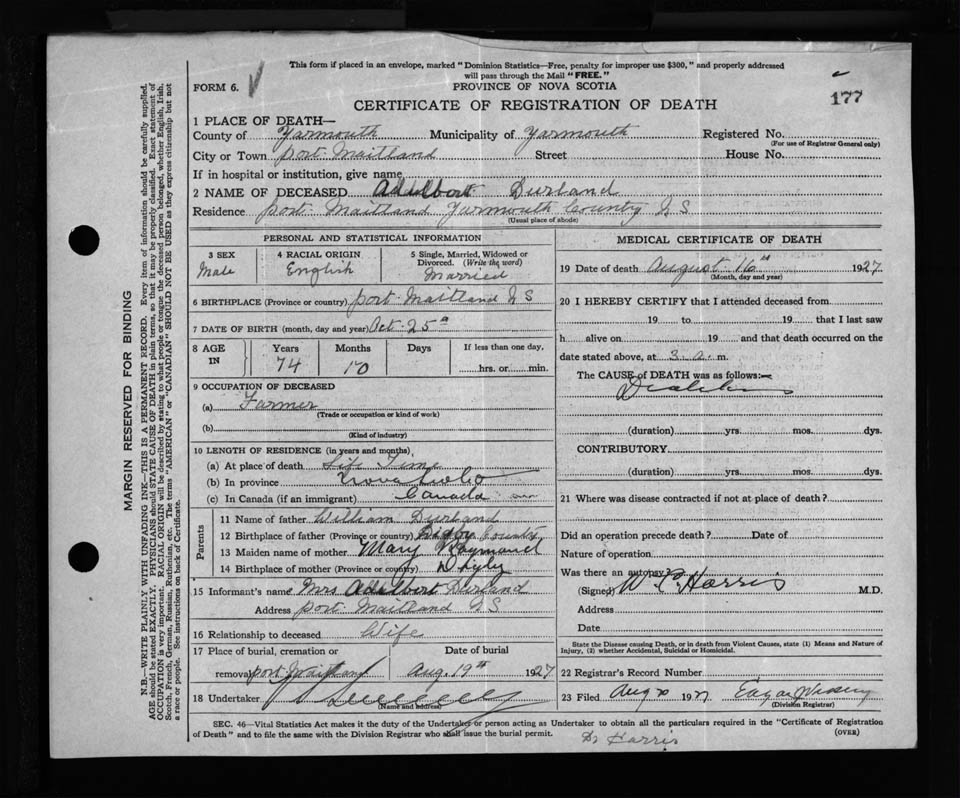 This form if placed in an envelope, marked "Dominion Statistics—Free, penalty for improper use $300," and properly addressed
will pass through the Mail "FREE."
FORM 6.
PROVINCE OF NOVA SCOTIA
177
CERTIFICATE OF REGISTRATION OF DEATH
1 PLACE OF DEATH—
County of Yarmouth Municipality of Yarmouth Registered No.
(For use of Registrar General only)
City or Town Port Maitland Street House No.
If in hospital or institution, give name
2 NAME OF DECEASED Adelbert Durland
Residence Port Maitland Yarmouth County N S
(Usual place of abode)
PERSONAL AND STATISTICAL INFORMATION
3 SEX
Male
4 RACIAL ORIGIN
English
5 Single, Married, Widowed or
Divorced. (Write the word)
Married
6 BIRTHPLACE (Province or country) Port Maitland N S
7 DATE OF BIRTH (month, day and year) Oct 25
8 AGE
IN
Years Months Days If less than one day,
74 10 hrs. or min.
9 OCCUPATION OF DECEASED
(a) Farmer
(Trade or occupation or kind of work)
(b)
(Kind of industry)
10 LENGTH OF RESIDENCE (in years and months)
(a) At place of death Life Time
(b) In province Nova Scotia
(c) In Canada (if an immigrant) Canada
Parents
11 Name of father William Durland
12 Birthplace of father (Province or country) Digby County
13 Maiden name of mother Mary Raymond
14 Birthplace of mother (Province or country) Digby
15 Informant's name Mrs Adelbert Durland
Address Port Maitland N S
16 Relationship to deceased Wife
17 Place of burial, cremation or
removal Port Maitland
Date of burial
Aug. 19th 1927
18 Undertaker
(Name and address)
MEDICAL CERTIFICATE OF DEATH
19 Date of death August 16th 1927
(Month, day and year)
20 I HEREBY CERTIFY that I attended deceased from
19 to 19 that I last saw
h alive on 19 and that death occurred on the
date stated above, at 3 a. m.
The CAUSE of DEATH was as follows:—
Diabetes
(duration) yrs. mos. dys.
CONTRIBUTORY
(duration) yrs. mos. dys.
21 Where was disease contracted if not at place of death?
Did an operation precede death? Date of
Nature of operation
Was there an autopsy?
(Signed) W. P. Harris M.D.
Address
Date
State the Disease causing Death, or in death from Violent Causes, state (1) Means and Nature of
Injury, (2) whether Accidental, Suicidal or Homicidal.
22 Registrar's Record Number
23 Filed Aug 192
(Division Registrar)
SEC. 46—Vital Statistics Act makes it the duty of the Undertaker or person acting as Undertaker to obtain all the particulars required in the "Certificate of Registration
of Death" and to file the same with the Division Registrar who shall issue the burial permit.
(OVER)
Dr Harris
MARGIN RESERVED FOR BINDING
N.B.—WRITE PLAINLY WITH UNFADING INK—THIS IS A PERMANENT RECORD. Every item of information should be carefully supplied.
AGE should be stated EXACTLY. PHYSICIANS should STATE CAUSE OF DEATH in plain terms, so that it may be properly classified. Exact statement of
OCCUPATION is very important. RACIAL ORIGIN will be described by stating to what people or tongue the deceased person belonged, whether English, Irish,
Scotch, French, German, Russian, Ruthenian, etc. The terms "AMERICAN" or "CANADIAN" SHOULD NOT BE USED as they express citizenship but not
a race or people. See instructions on back of Certificate.